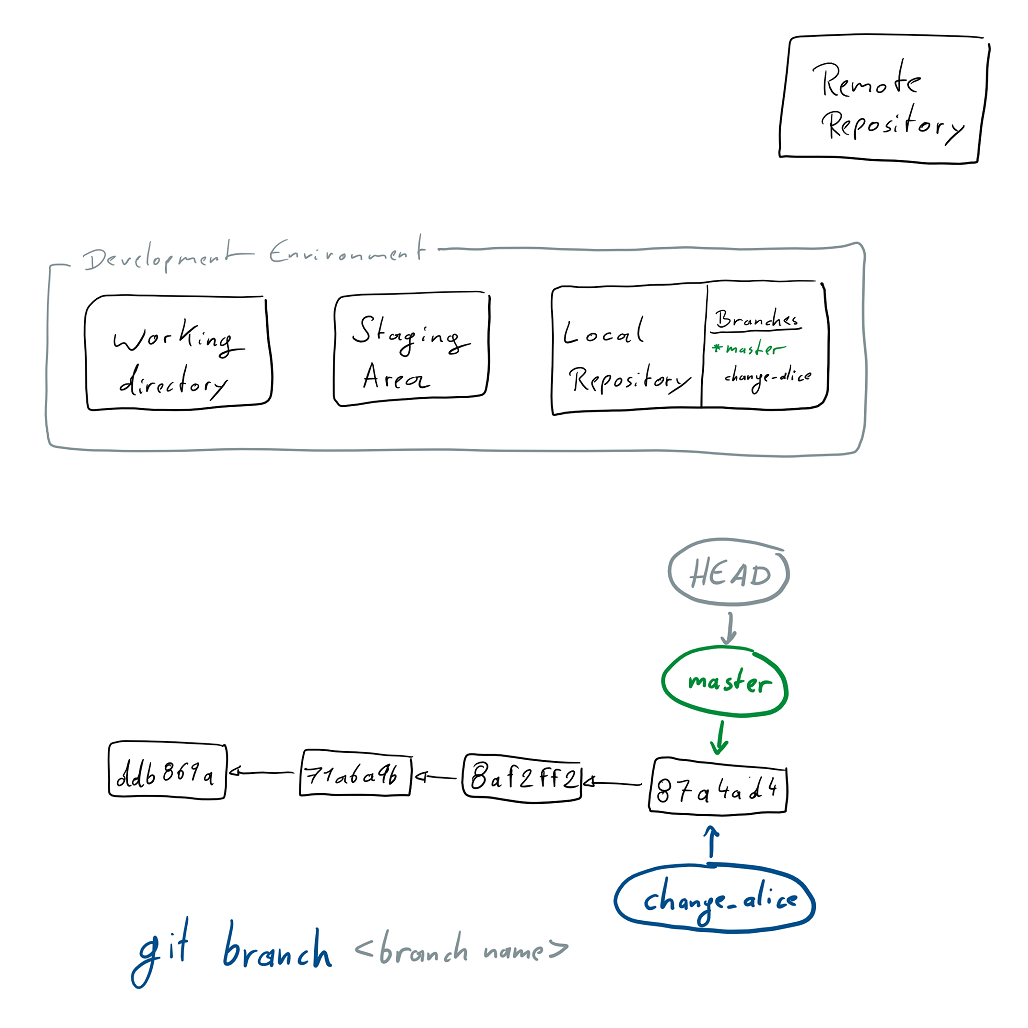 Remote
Repository
Development Environment
Working
directory
Staging
Area
Local
Repository
Branches
*master
change_alice
HEAD
master
ddb869a
71a6a9b
8af2ff2
87a4ad4
change_alice
git branch <branch name>